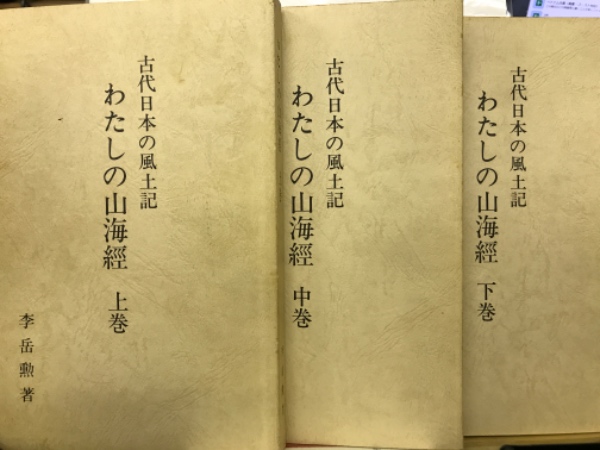 古代日本の風土記
わたしの山海經 上巻
李岳勲著
古代日本の風土記
わたしの山海經 中巻
古代日本の風土記
わたしの山海經 下巻